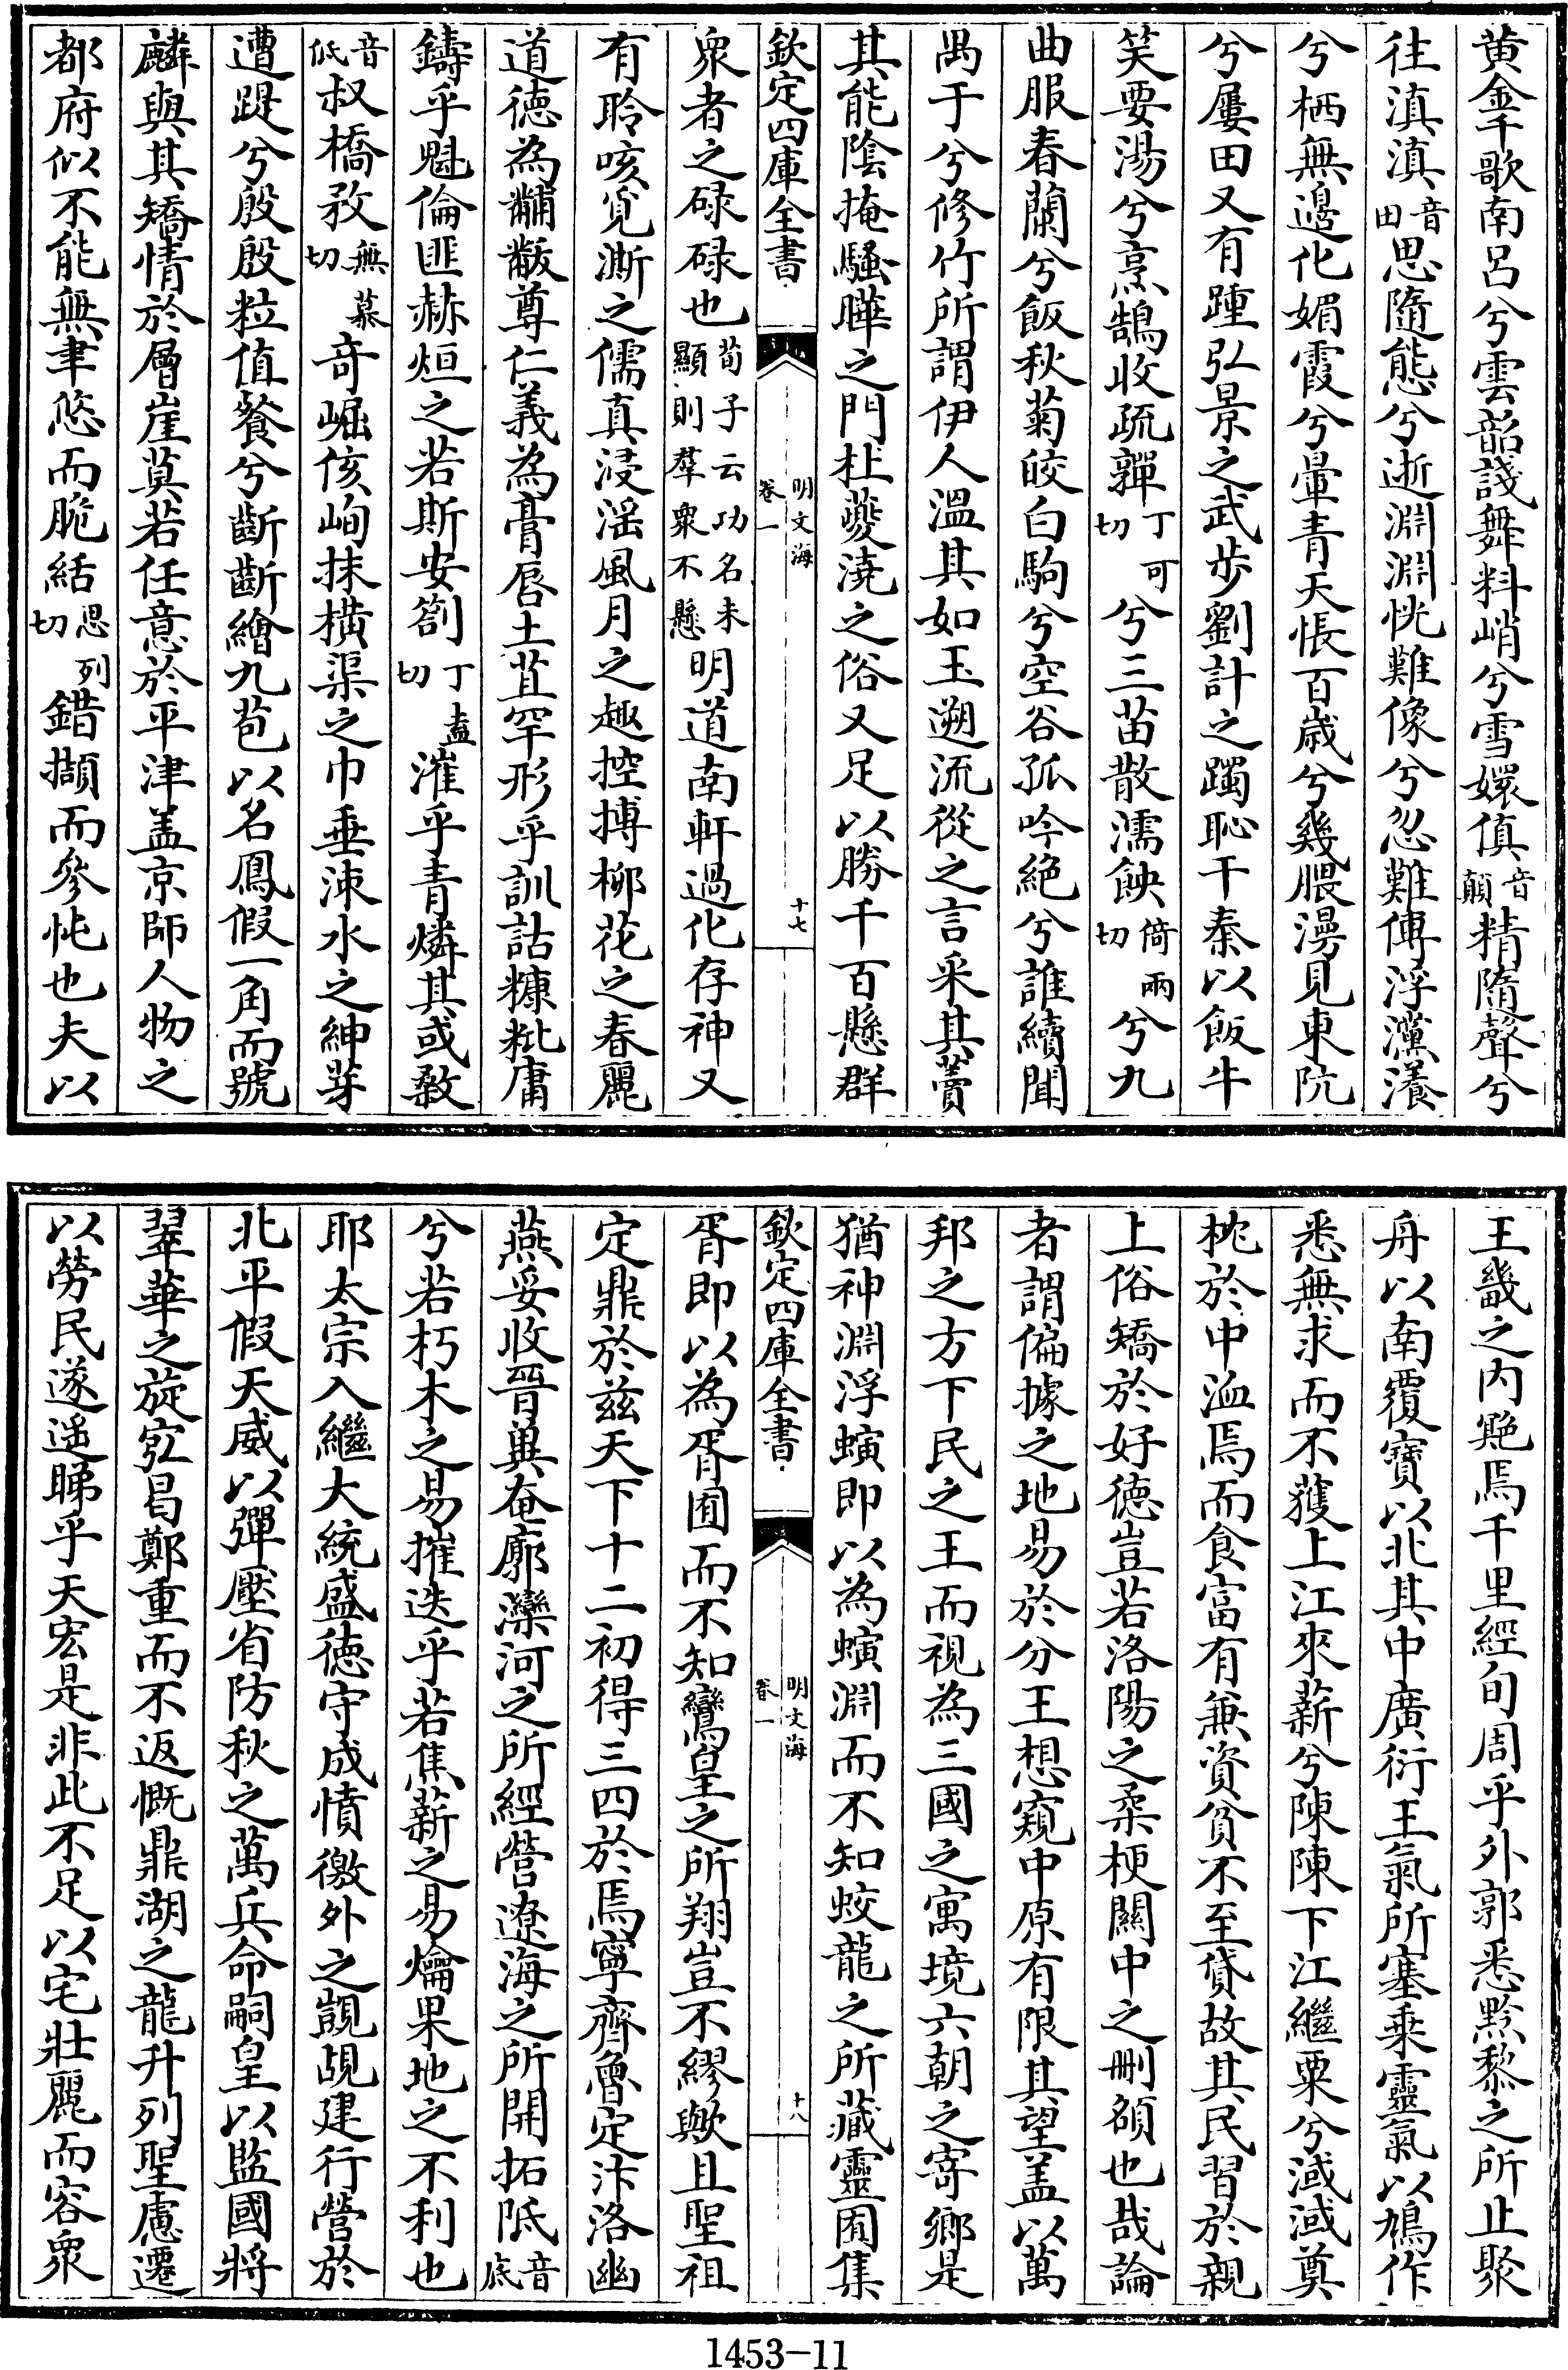 黄金千歌南呂兮雲韶諓舞料峭兮雪嬛傎音顛精隋聲兮
往滇滇音田思隨態兮逝淵淵恍難像兮忽難傅浮灙瀁
兮栖無邉化媚霞兮暈青天悵百歳兮幾腲漫見東阬
兮屢田又有踵弘景之武歩劉計之躅恥干秦以飯牛
笑要湯兮烹鵠收疏嚲丁可切兮三苗散濡䬬倚兩切兮九
曲服春蘭兮飯秋菊皎白駒兮空谷孤吟絶兮誰續聞
喁于兮修竹所謂伊人溫其如玉遡流從之言采其藚
其能陰掩騷曄之門杜虁澆之俗又足以勝千百懸群
欽定四庫全書
明文海
卷一
十七
衆者之碌碌也荀子云功名未顯則羣衆不懸明道南軒過化存神又
有聆咳覓澌之儒真浸滛風月之趣控摶柳花之春麗
道徳為黼黻尊仁義為膏唇土苴罕形乎訓詁糠粃庸
鑄乎魁倫匪赫烜之若斯安劄丁盍切漼乎青燐其或敎
音低叔橋敄無慕切竒崛侅峋抹橫渠之巾垂涑水之紳芽
遭踶兮殷殷粒值餐兮齗齗繪九苞以名鳳假一角而號
麟與其矯情於層崖莫若任意於平津盖京師人物之
都府似不能無聿悠而脆絬思列切錯擷而參忳也夫以
王畿之内兠焉千里經旬周乎外郭悉黔黎之所止聚
舟以南覆寶以北其中廣衍王氣所塞乗靈氣以鳩作
悉無求而不獲上江來薪兮陳陳下江繼粟兮淢淢奠
枕於中洫焉而食富有兼資貧不至貸故其民習於親
上俗矯於好徳豈若洛陽之柔梗關中之刪頟也哉論
者謂偏據之地易於分王想窺中原有限其望盖以萬
邦之方下民之王而視為三國之寓境六朝之寄鄉是
猶神淵浮蟥即以為蟥淵而不知蛟龍之所藏靈囿集
欽定四庫全書
明文海
卷一
十八
胥即以為胥囿而不知鸞皇之所翔豈不繆歟且聖祖
定鼎於兹天下十二初得三四於焉寧齊魯定汴洛幽
燕妥收晉兾奄廓灤河之所經營遼海之所開拓阺音底
兮若朽木之易摧迭乎若焦薪之易爚果地之不利也
耶太宗入繼大統盛徳守成憤徼外之覬覘建行營於
北平假天威以彈壓省防秋之萬兵命嗣皇以監國將
翠華之旋㝎曷鄭重而不返慨鼎湖之龍升列聖慮遷
以勞民遂遥睇乎天宏是非此不足以宅壯麗而容衆
1453-11